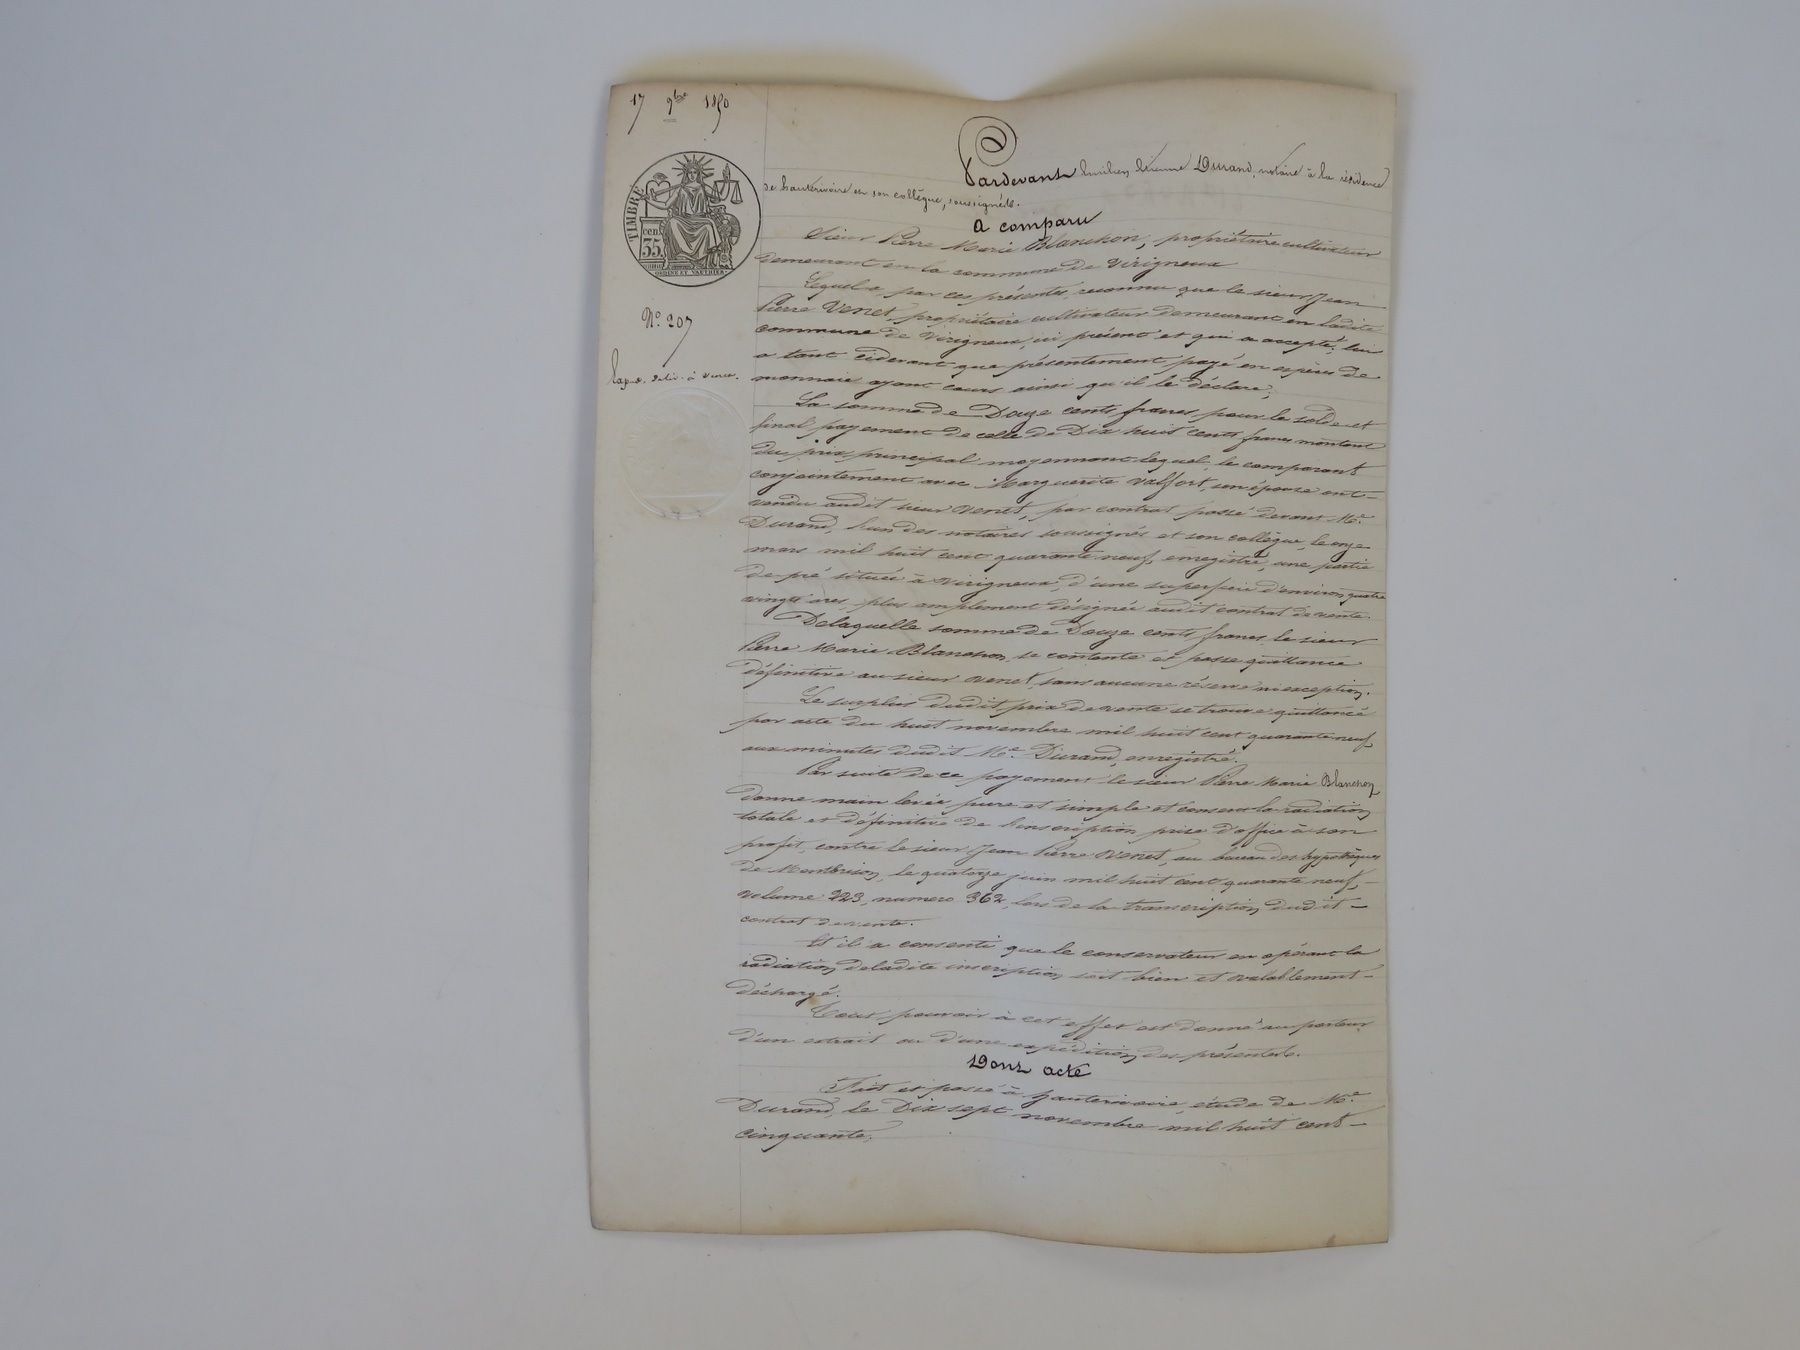 17 9bre 1850
TIMBRE
cen. 35.
N° 207
délivr. à Venet.
Pardevant Lucilien Etienne Durand, notaire à la résidence
de hauterivoire et son collègue, soussignés.
A comparu
Sieur Pierre Marie Blanchon, propriétaire cultivateur
demeurant en la commune de Virigneux
Lequel a, par ces présentes, reconnu que le sieur Jean
Pierre Venet, propriétaire cultivateur demeurant en ladite
commune de Virigneux, ici présent et qui a accepté; lui
a tant cidevant que présentement payé en espèces de
monnaie ayant cours ainsi qu'il le déclare;
La somme de Douze cents francs pour le solde et
final payement de celle de Dix huit cents francs montant
du prix principal moyennant lequel, le comparant
conjointement avec Marguerite Valfort, son épouse ont
vendu audit sieur Venet, par contrat passé devant Me.
Durand, l'un des notaires soussignés et son collègue, le onze
mars mil huit cent quarante neuf, enregistré, une partie
de pré située à Virigneux, d'une superficie d'environ quatre
vingts ares, plus amplement désignée audit contrat de vente.
Delaquelle somme de Douze cents francs, le sieur
Pierre Marie Blanchon, se contente et passe quittance
définitive au sieur Venet, sans aucune réserve ni exception.
Le surplus dudit prix de vente se trouve quittancé
par acte du huit novembre mil huit cent quarante neuf
aux minutes dudit Me. Durand, enregistré.
Par suite de ce payement le sieur Pierre Marie Blanchon
donne main levée pure et simple et consent la radiation
totale et définitive de l'inscription prise d'office à son
profit, contre le sieur Jean Pierre Venet, au bureau des hypothèques
de Montbrison, le quatorze juin mil huit cent quarante neuf,
volume 223, numero 362, lors de la transcription dudit
contrat de vente.
Et il a consenti que le conservateur en opérant la
radiation deladite inscription soit bien et valablement
déchargé.
Tout pouvoir à cet effet est donné au porteur
d'un extrait ou d'une expédition des présentes.
Dont acte
Fait et passé à hauterivoire, étude de Me.
Durand, le Dix sept novembre mil huit cent
cinquante;